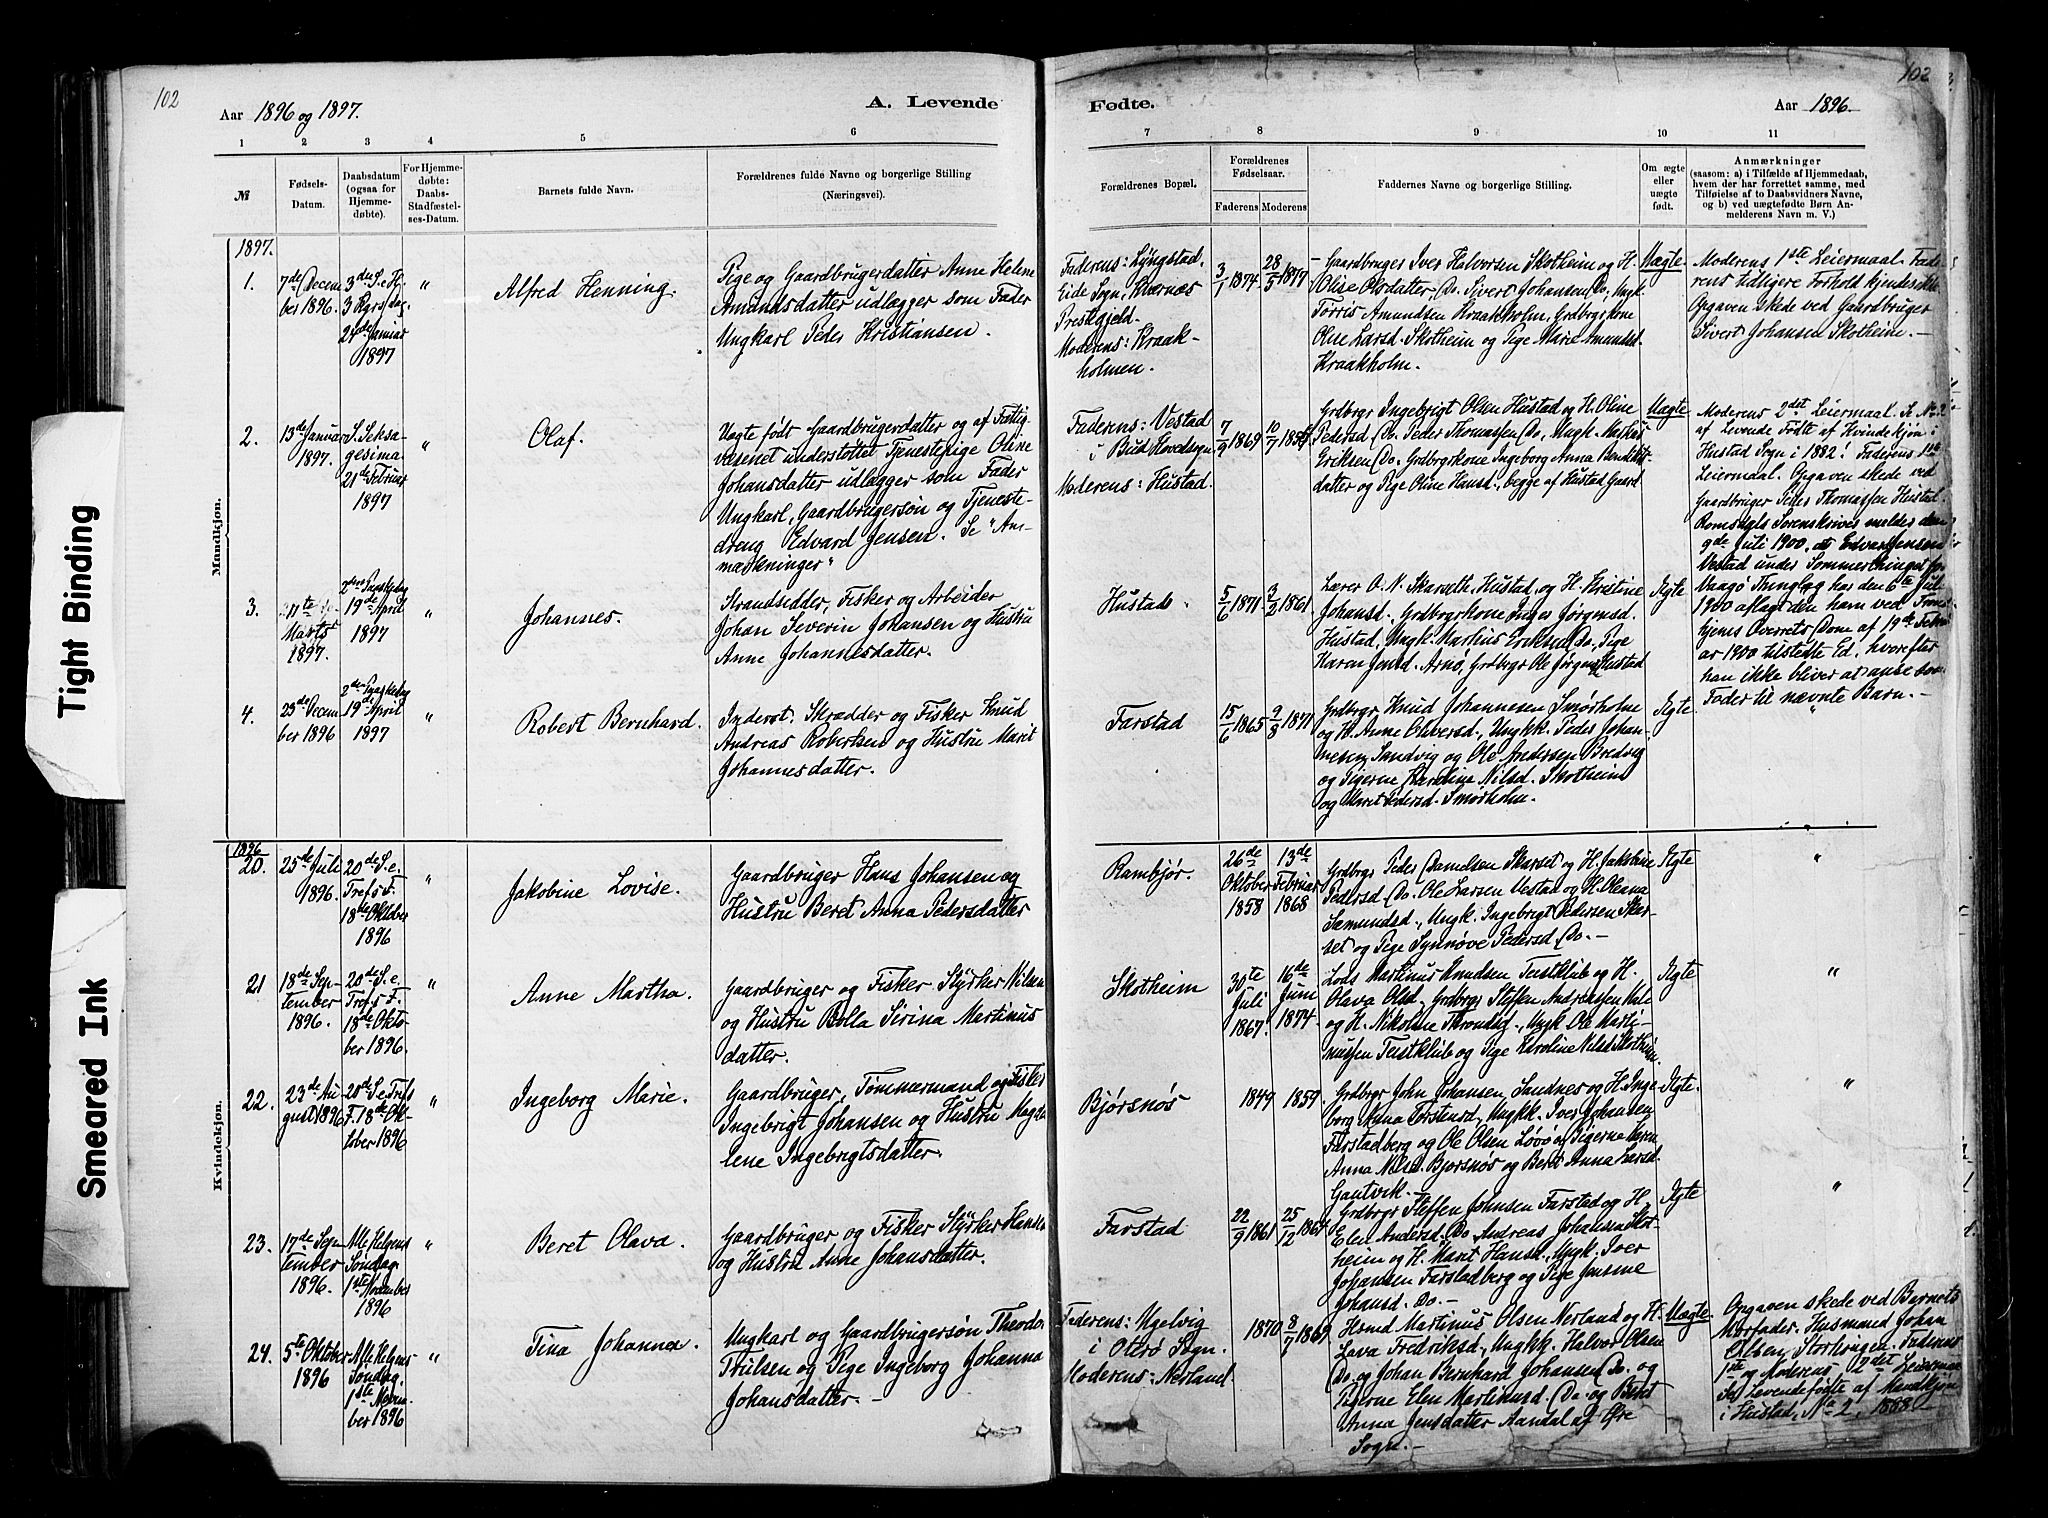 102
Aar 1896 og 1897.
A. Levende
1 2 3 4 5 6
№
Fødsels-Datum.
Daabsdatum (ogsaa for Hjemmedøbte).
For Hjemmedøbte: Daabs-Stadfæstelses-Datum.
Barnets fulde Navn.
Forældrenes fulde Navne og borgerlige Stilling
(Næringsvei).
Mandkjøn.
1897.
1.
7de Decem
ber 1896.
3die S. e. H.
3 Kgrs dag.
24de Januar
1897
"
Alfred Henning.
Pige og Gaardbrugerdatter Anne Helene
Amundsdatter udlægger som Fader
Ungkarl Peder Kristiansen.
2.
13de Januar
1897.
S. Seksa-
gesima
21de Februar
1897
"
Olaf.
Uægte født Gaardbrugerdatter og af Fattig-
væsenet understøttet Tjenestepige Oline
Johansdatter udlægger som Fader
Ungkarl, Gaardbrugersøn og Tjeneste-
dreng Edvard Jensen. Se "An-
mærkninger"
3.
11te
Marts
1897.
2den Paaskedag
19de April
1897
"
Johannes.
Strandsidder, Fisker og Arbeider
Johan Severin Johansen og Hustru
Anne Johannesdatter.
4.
23de Decem
ber 1896
2den Paaskedag
19de April
1897
"
Robert Bernhard.
Inderst. Skrædder og Fisker Knud
Andreas Robertsen og Hustru Marit
Johannesdatter.
Kvindekjøn.
1896
20.
25de Juli
1896.
20de S. e.
Tref. s F.
18de Oktober
1896
"
Jakobine Lovise.
Gaardbruger Hans Johansen og
Hustru Beret Anna Pedersdatter
21
18de Sep-
tember
1896.
20de S. e.
Tref. s F.
18de Okto-
ber 1896.
"
Anne Martha.
Gaardbruger og Fisker Styrker Nilsen
og Hustru Bolla Serina Martinus
datter.
22.
23de Au
gust 1896
20de S. e. Tref s
F. 18de Ok-
tober 1896
"
Ingeborg Marie.
Gaardbruger, Tømmermand og Fisker
Ingebrigt Johansen og Hustru Magda
lene Ingebrigtsdatter.
23.
17de Sep
tember
1896.
Alle Helgens
Søndag.
1ste November
1896
"
Beret Olava.
Gaardbruger og Fisker Styrker Hansen
og Hustru Anne Johansdatter.
24.
5te Oktober
1896
Alle Helgens
Søndag.
1ste Novem
ber 1896
"
Tina Johanna.
Ungkarl og Gaardbrugersøn Theodor
Trulsen og Pige Ingeborg Johanna
Johansdatter. –
102
Fødte.
Aar 1896
7 8 9 10 11
Forældrenes Bopæl.
Forældrenes Fødselsaar.
Faderens Moderens
Faddernes Navne og borgerlige Stilling.
Om ægte eller uægte født.
Anmærkninger
(saasom: a) i Tilfælde af Hjemmedaab,
hvem der har forrettet samme, med
Tilføielse af to Daabsvidners Navne,
og b) ved uægtefødte Børn An-
melderens Navn m. V.)
Faderens: Lyngstad,
Eide Sogn, Kværnæs
Prestegjeld.
Moderens: Kraak-
holmen.
3/1 1874
28/5 1877
Gaardbruger Iver Halvorsen Skotheim og H.
Olise Olsdatter, Do. Sivert Johansen Do, Ungk.
Torris Amundsen Kraakholm, Grdbrgrkone
Oline Larsd. Skotheim og Pige Marie Amundsd.
Kraakholm.
Uægte
Moderens 1ste Leiermaal. Fade-
rens tidligere Forhold kjendes ikke.
Opgaven skede ved Gaardbruger
Sivert Johansen Skotheim. –
Faderens: Vestad
i Bud Hovedsogn
Moderens: Hustad.
7/9 1869
Grdbrgr Ingebrigt Olsen Hustad og H. Oline
Pedersd Do. Peder Thomassen Do, Ungk. Markus
Eriksen Do. Grdbrgrkone Ingeborg Anna Bendikts-
datter og Pige Oline Hansd. begge af Hustad Gaard
Uægte
Moderens 2det Leiermaal. Se No. 2
af Levende Fødte af Kvindekjøn i
Hustad Sogn i 1882. Faderens 1ste
Leiermaal. Opgaven skede ved
Gaardbruger Peder Thomassen Hustad.
Romsdals Sorenskriver melder den
9de Juli 1900, at Edvard Jensen
Vestad under Sommerthinget for
Vaagø Thinglag har den 6te Juli
1900 aflagt den ham ved Trond-
hjems Overrets Dom af 19de
1900 tilstedte Ed, hvorefter
han ikke bliver at anse som
Fader til nævnte Barn. –
Hustad
5/6 1871
3/2 1861
Lærer O. N. Skarseth, Hustad, og H. Kristine
Johansd. Grdbrgrkone Inger Jørgensd.
Hustad, Ungk. Martius Eriksen Do, Pige
Karen Jensd. Arnø, Grdbrgr Ole Jørgensen Hustad
Ægte
Farstad
15/6 1865
9/8 1871
Grdbrgr Knud Johannesen Smørholm
og H. Anne Olaversd., Ungkk. Peder Johan-
nesen Sandvig og Ole Andersen Bredvig
og Pigerne Karoline Nilsd. Skotheim
og Maret Pedersd. Smørholm.
Ægte
Rambjør.
26de
Oktober
1858
13de
Februar
1868
Grdbrgr Peder Danielsen Skarset og H. Jakobine
Pedersd Do. Ole Larsen Vestad og H. Oleana
Samundsd., Ungk. Ingebrigt Pedersen Skar-
set og Pige Synnøve Pedersd Do. –
Ægte
"
Skotheim
30te
Juli
1867.
16de
Juni
1874.
Lods Martinus Knudsen Teistklub og H.
Olava Olsd, Grdbrgr Steffen Andreassen
og H. Nikoline Throndsd., Ungk Ole Marti-
nussen Teistklub og Pige Karoline Nilsd Skotheim
Ægte
"
Bjørsnøs
1849
1859.
Grdbrgr John Johansen Sandnes og H. Inge-
borg Anna Torstensd, Ungkk. Iver Johansen
Farstadberg og Ole Olsen Løvø og Pigerne Karen
Anna Nilsd. Bjørsnøs og Beret Anna Larsd.
Gautvik. –
Ægte.
"
Farstad
22/9 1861
25/12
Grdbrgr Steffen Johnsen Farstad og H.
Elen Andersd. Do, Andreas Johansen Skot-
heim og H. Marit Hansd., Ungk. Iver
Johansen Farstadberg og Pige Jensine
Johansd. Do. –
Ægte
"
Faderens: Ugelvig
i Oterø Sogn.
Moderens: Nerland
1870
8/7 1869
Hsmd Martinus Olsen Nerland og H.
Lava Fredriksd, Ungkk. Halvor Olsen
Do. og Johan Bernhard Johansen Do. og
Pigerne Elen Martinusd. Do. og Beret
Anna Jensdatter Aandal af Øre
Sogn. –
Uægte
Opgaven skede ved Barnets
Morfader, Husmand Johan
Olsen, Storlungen. Faderens
1ste og Moderens 2det Leiermaal
Se Levendefødte af Mandkjøn
i Hustad, No 2, 1888
Tight Binding
Smeared Ink